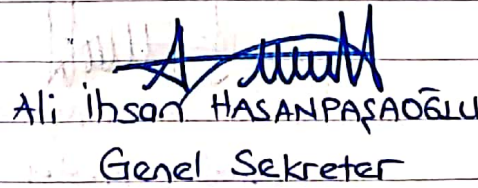 Ali İhsan HASANPAŞAOĞLU
Genel Sekreter